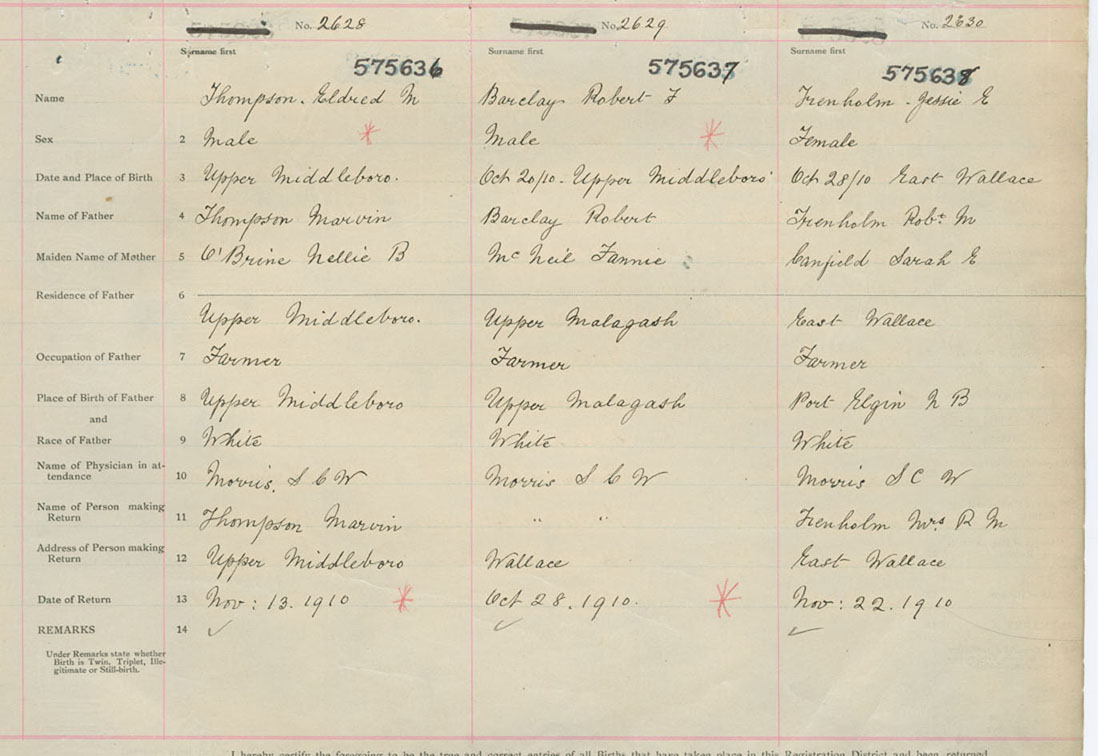 No. 2628 No. 2629 No. 2630
Surname first Surname first Surname first
575636 575637 575638
Name Thompson. Eldred M Barclay Robert F Trenholm. Jessie E
Sex 2 Male * Male * Female
Date and Place of Birth 3 Upper Middleboro. Oct 20/10. Upper Middleboro' Oct 28/10 East Wallace
Name of Father 4 Thompson Marvin Barclay Robert Trenholm Robt M
Maiden Name of Mother 5 O'Brine Nellie B Mc Neil Fannie Canfield Sarah E
Residence of Father 6
Upper Middleboro. Upper Malagash East Wallace
Occupation of Father 7 Farmer Farmer Farmer
Place of Birth of Father 8 Upper Middleboro Upper Malagash Port Elgin N B
and
Race of Father 9 White White White
Name of Physician in at-
tendance 10 Morris. S C W Morris S C W Morris S C W
Name of Person making
Return 11 Thompson Marvin " " Trenholm Mrs R M
Address of Person making
Return 12 Upper Middleboro Wallace East Wallace
Date of Return 13 Nov: 13. 1910 * Oct 28. 1910. * Nov: 22. 1910
REMARKS 14 ✓ ✓ ✓
Under Remarks state whether
Birth is Twin, Triplet, Ille-
gitimate or Still-birth.
I hereby certify the foregoing to be the true and correct entries of all Births that have taken place in this Registration District and been returned